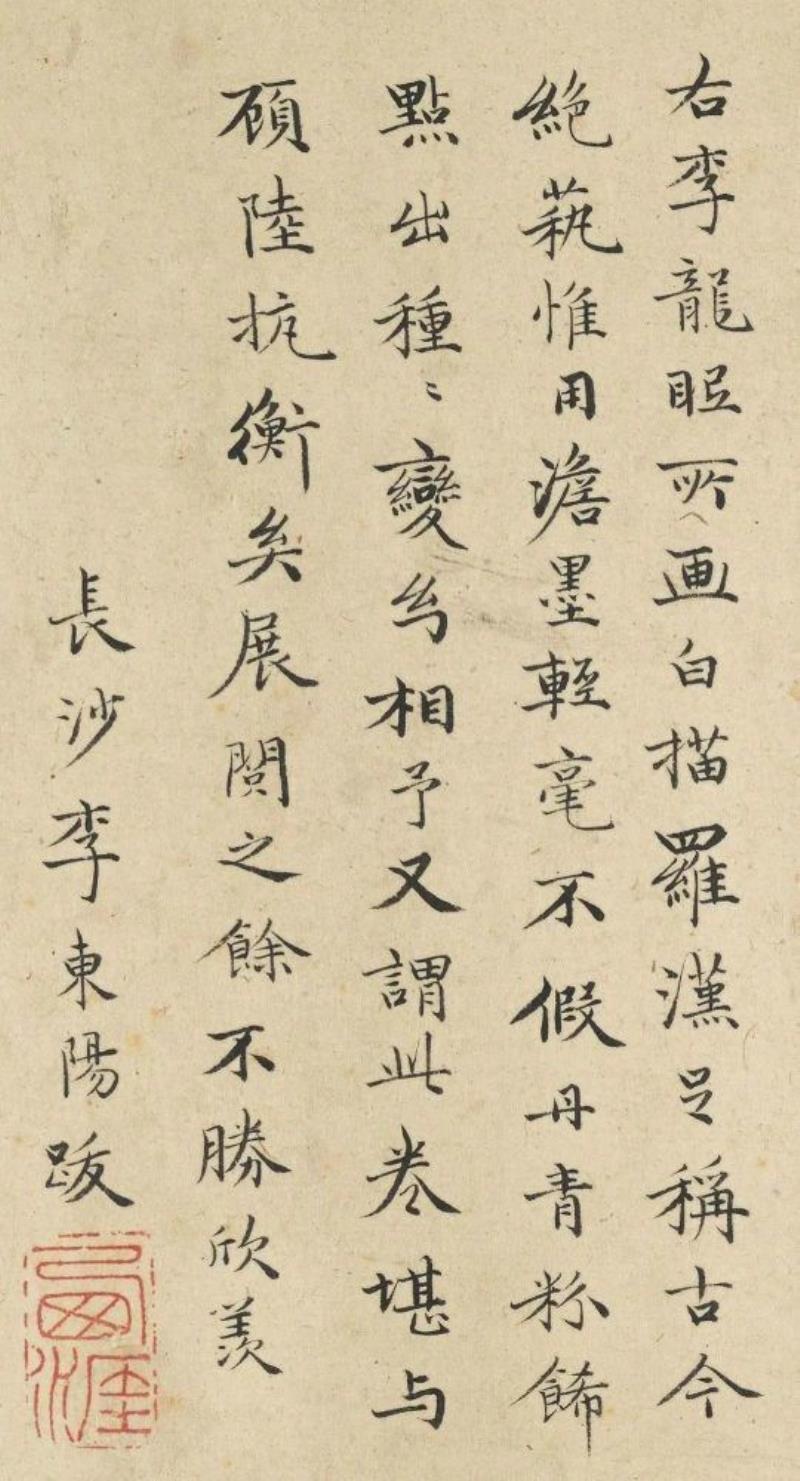 右李龍眠所画白描羅漢足稱古今
絶蓺惟用澹墨輕毫不假丹青粉餙
點出種〻變幻相予又謂此卷堪与
顧陸抗衡矣展閱之餘不勝欣羨
長沙李東陽跋
西涯